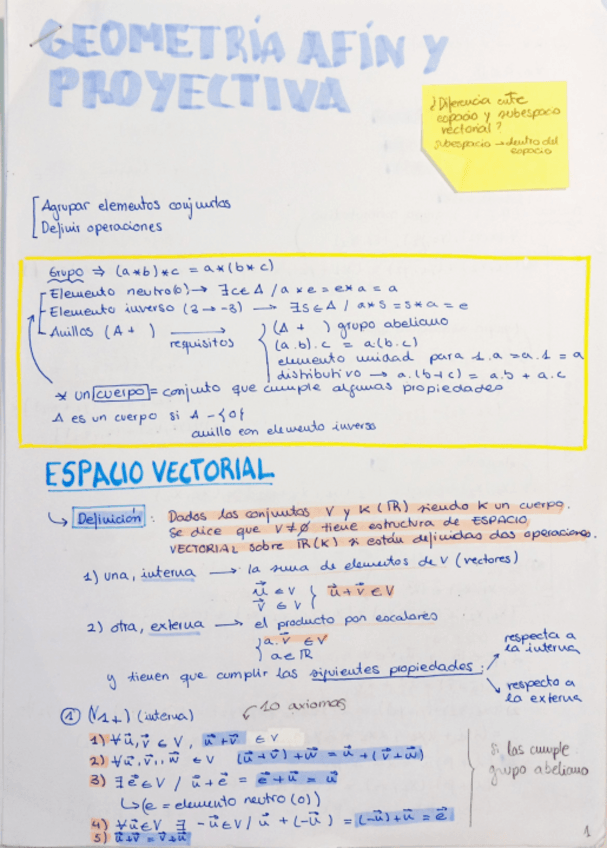 GEOMETRÍA AFÍN Y
PROYECTIVA
¿Diferencia entre
espacio y subespacio
vectorial?
subespacio → dentro del
espacio
Agrupar elementos conjuntos
Definir operaciones
Grupo ⇒ (a*b)*c = a*(b*c)
Elemento neutro(e) → ∃e∈A / a*e = e*a = a
Elemento inverso (3 → -3) → ∃s∈A / a*s = s*a = e
Anillos (A + ) → requisitos
(A + ) grupo abeliano
(a.b).c = a(b.c)
elemento unidad para 1.a = a.1 = a
distributivo → a.(b+c) = a.b + a.c
* un cuerpo = conjunto que cumple algunas propiedades
A es un cuerpo si A - {0}
anillo con elemento inverso
ESPACIO VECTORIAL
↳ Definición: Dados los conjuntos V y K (ℝ) siendo K un cuerpo.
Se dice que V ≠ ∅ tiene estructura de ESPACIO
VECTORIAL sobre ℝ(K) si están definidas dos operaciones.
1) una, interna → la suma de elementos de V (vectores)
u⃗ ∈ V } u⃗ + v⃗ ∈ V
v⃗ ∈ V
2) otra, externa → el producto por escalares
a.v⃗ ∈ V
a ∈ ℝ
y tienen que cumplir las siguientes propiedades:
respecto a
la interna
respecto a
la externa
① (V, +) (interna)
10 axiomas
1) ∀u⃗,v⃗ ∈ V, u⃗+v⃗ ∈ V
2) ∀u⃗,v⃗, w⃗ ∈ V (u⃗+v⃗)+w⃗ = u⃗+(v⃗+w⃗)
3) ∃e⃗∈V / u⃗+e⃗ = e⃗+u⃗ = u⃗
↳(e = elemento neutro (0))
4) ∀u⃗∈V ∃ -u⃗∈V / u⃗ + (-u⃗) = (-u⃗)+u⃗ = e⃗
5) u⃗+v⃗ = v⃗+u⃗
Si las cumple
grupo abeliano
1